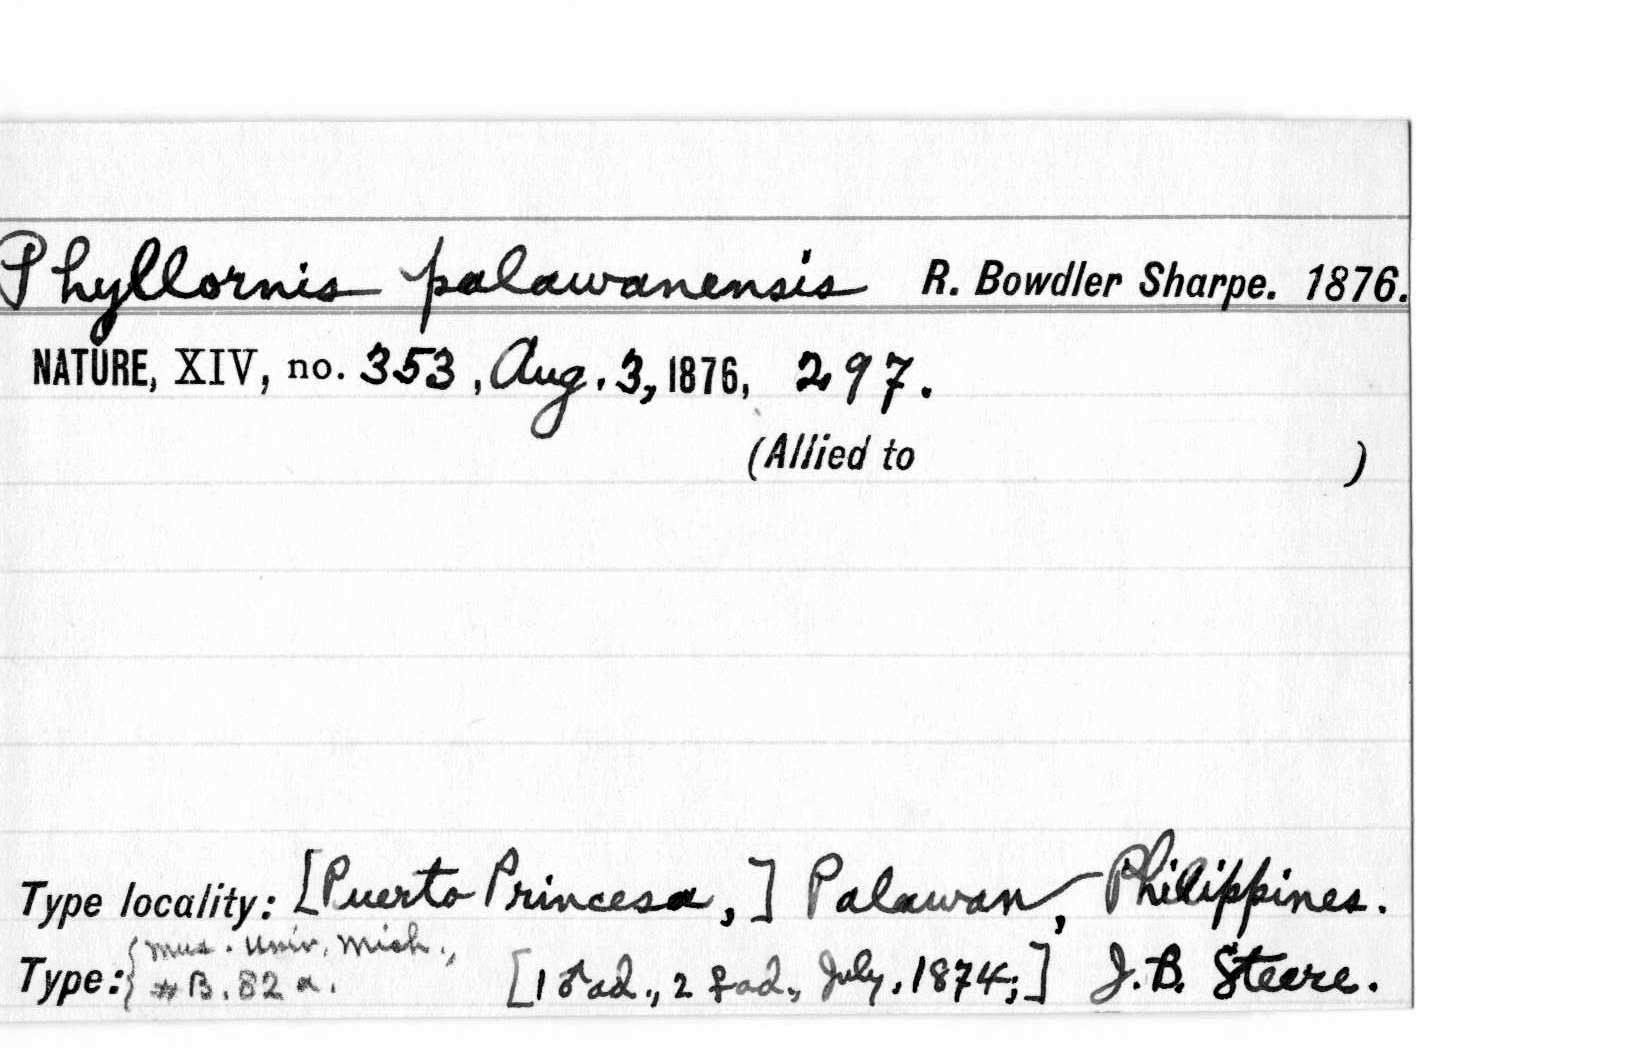 Phyllornis palawanensis R. Bowdler Sharpe. 1876.
NATURE, XIV, no. 353, Aug. 3, 1876, 297.
(Allied to )
Type locality: [Puerto Princesa,] Palawan, Philippines.
Type: { Mus. Univ. Mich., [1 ♂ ad., 2 ♀ ad., July, 1874;] J. B. Steere.
# B. 82 a.